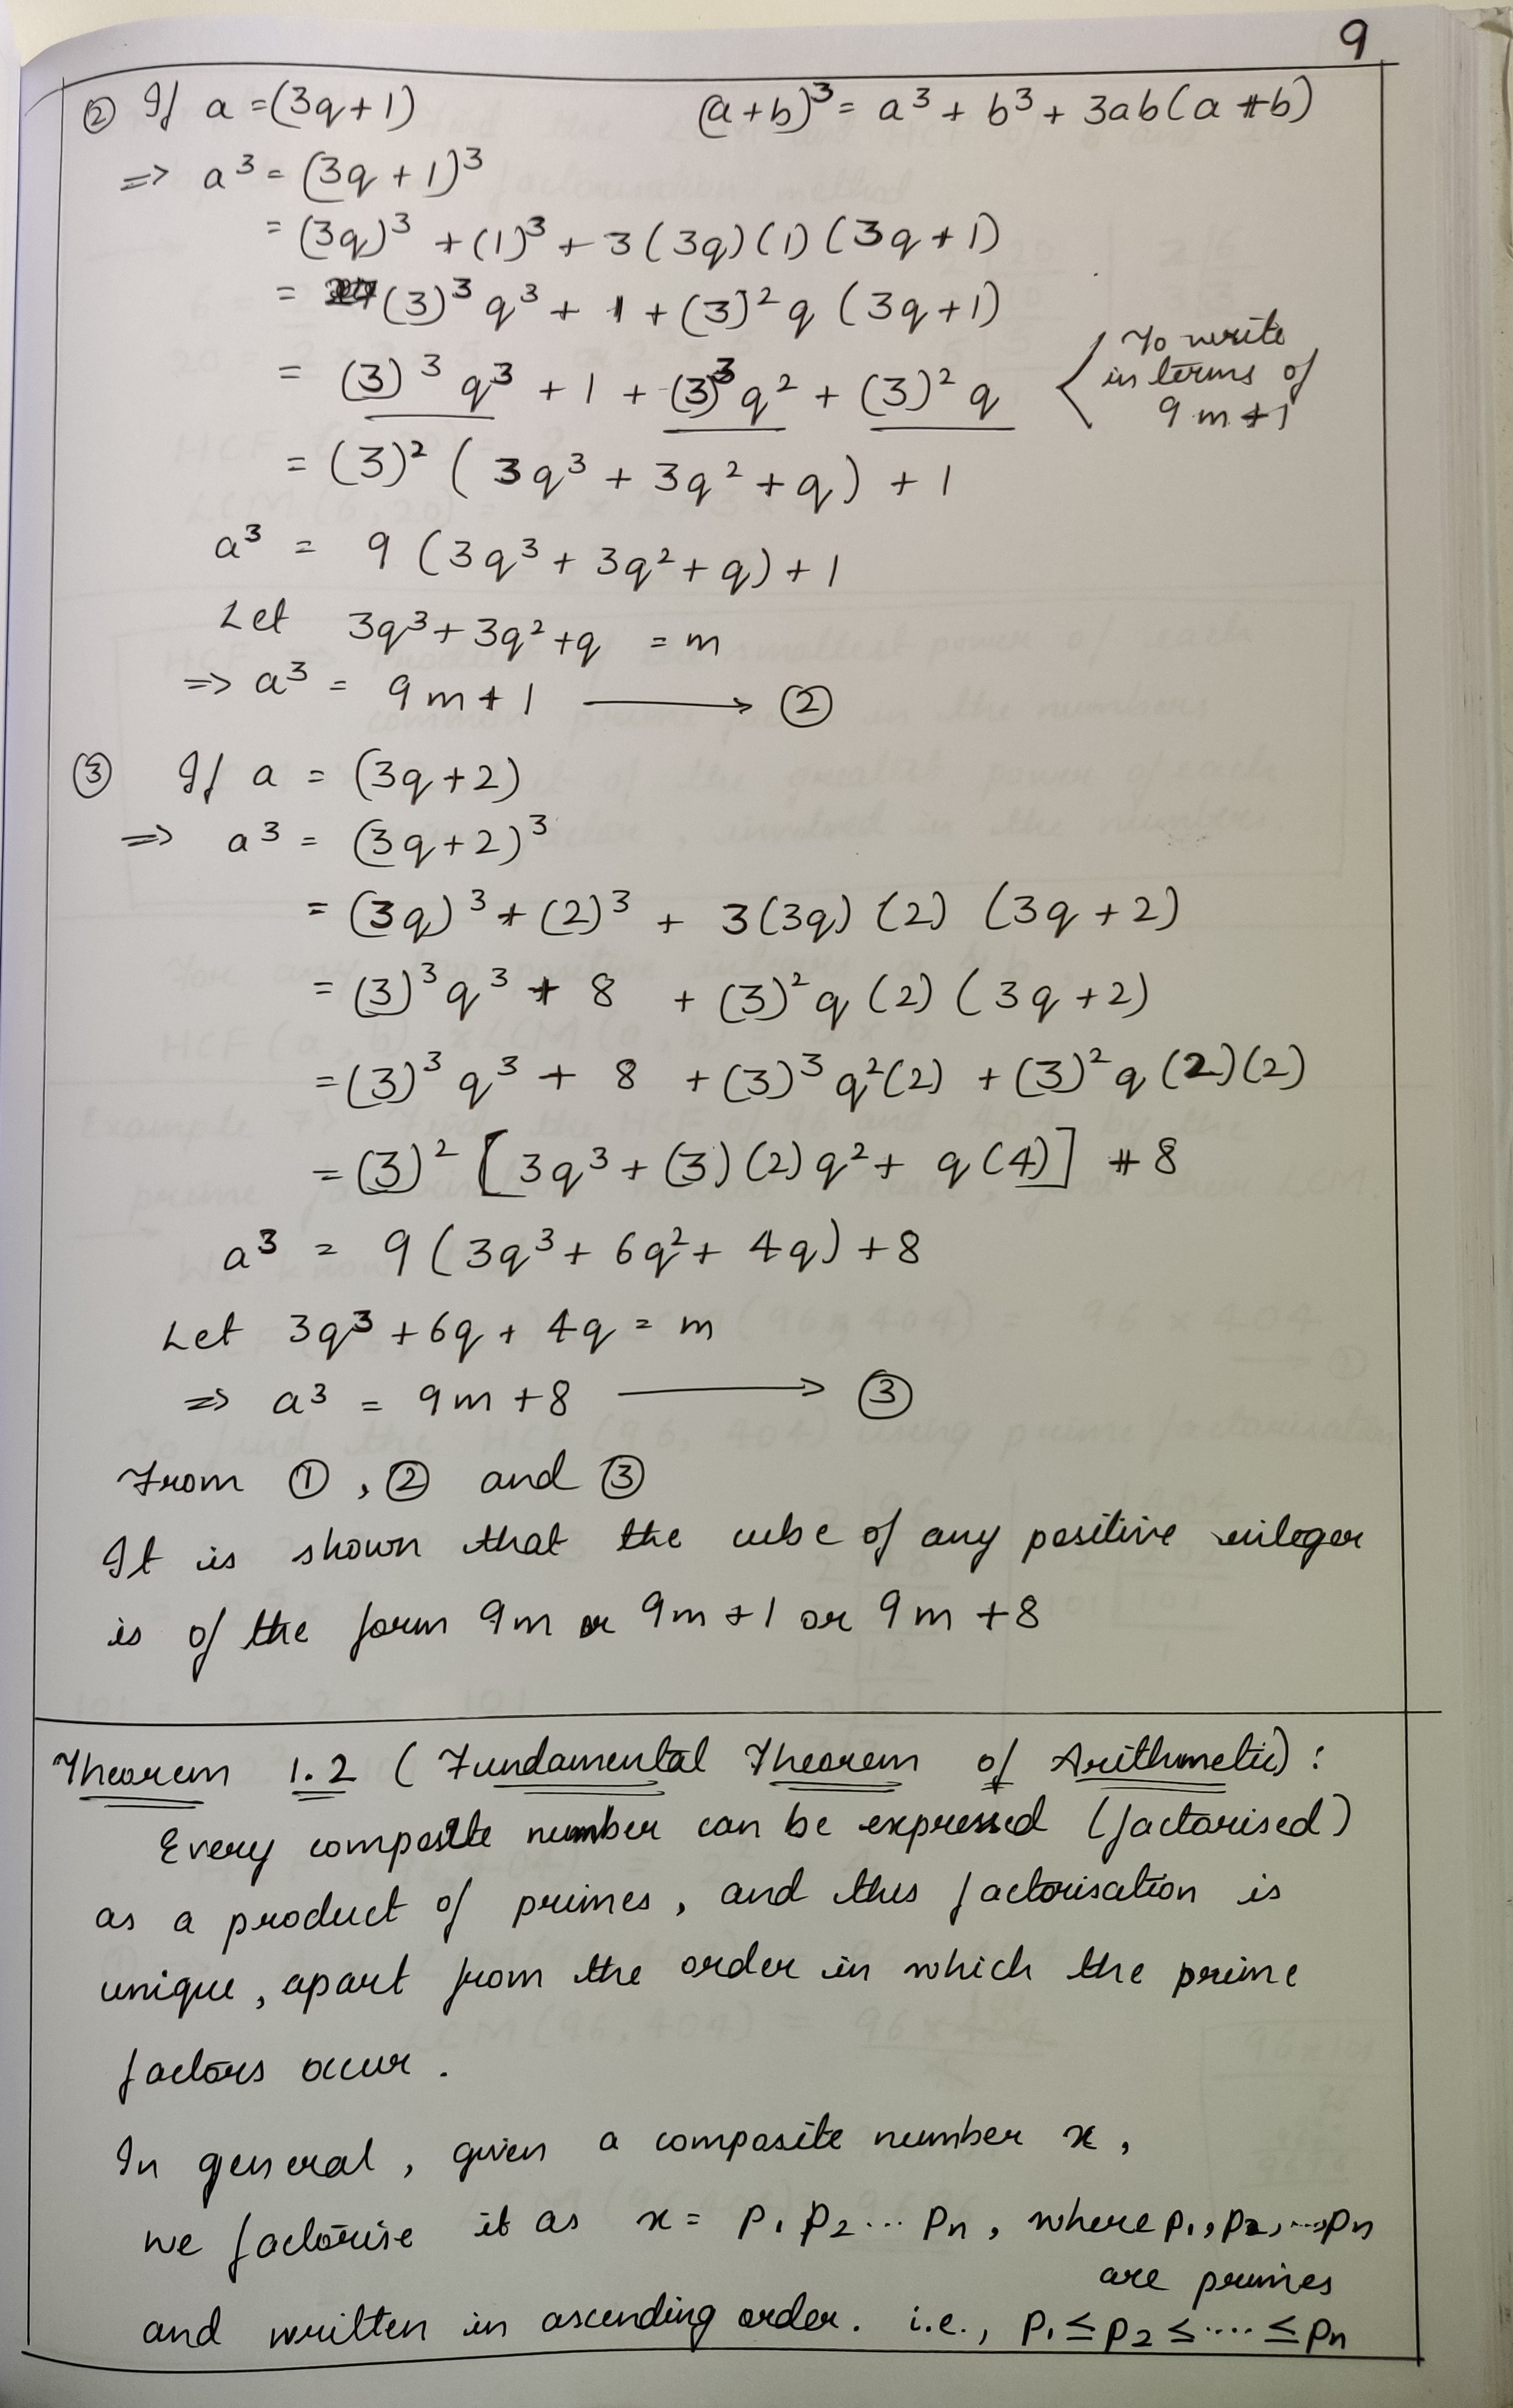 9
② If a = (3q+1)   (a+b)³ = a³ + b³ + 3ab(a+b)
=> a³ = (3q+1)³
= (3q)³ + (1)³ + 3(3q)(1)(3q+1)
= (3)³ q³ + 1 + (3)² q (3q+1)
= (3)³ q³ + 1 + (3)³ q² + (3)² q   < To write
in terms of
9m+1
= (3)² (3q³ + 3q² + q) + 1
a³ = 9 (3q³ + 3q² + q) + 1
Let 3q³ + 3q² + q = m
=> a³ = 9m+1 ⟶ ②
③ If a = (3q+2)
=> a³ = (3q+2)³
= (3q)³ + (2)³ + 3(3q)(2)(3q+2)
= (3)³ q³ + 8 + (3)² q (2) (3q+2)
= (3)³ q³ + 8 + (3)³ q² (2) + (3)² q (2)(2)
= (3)² [3q³ + (3)(2)q² + q(4)] + 8
a³ = 9 (3q³ + 6q² + 4q) + 8
Let 3q³ + 6q + 4q = m
=> a³ = 9m+8 ⟶ ③
From ①, ② and ③
It is shown that the cube of any positive integer
is of the form 9m or 9m+1 or 9m+8
Theorem 1.2 (Fundamental Theorem of Arithmetic):
Every composite number can be expressed (factorised)
as a product of primes, and this factorisation is
unique, apart from the order in which the prime
factors occur.
In general, given a composite number x,
we factorise it as x = p₁ p₂ ... pₙ, where p₁, p₂, ..., pₙ
are primes
and written in ascending order. i.e., p₁ ≤ p₂ ≤ .... ≤ pₙ